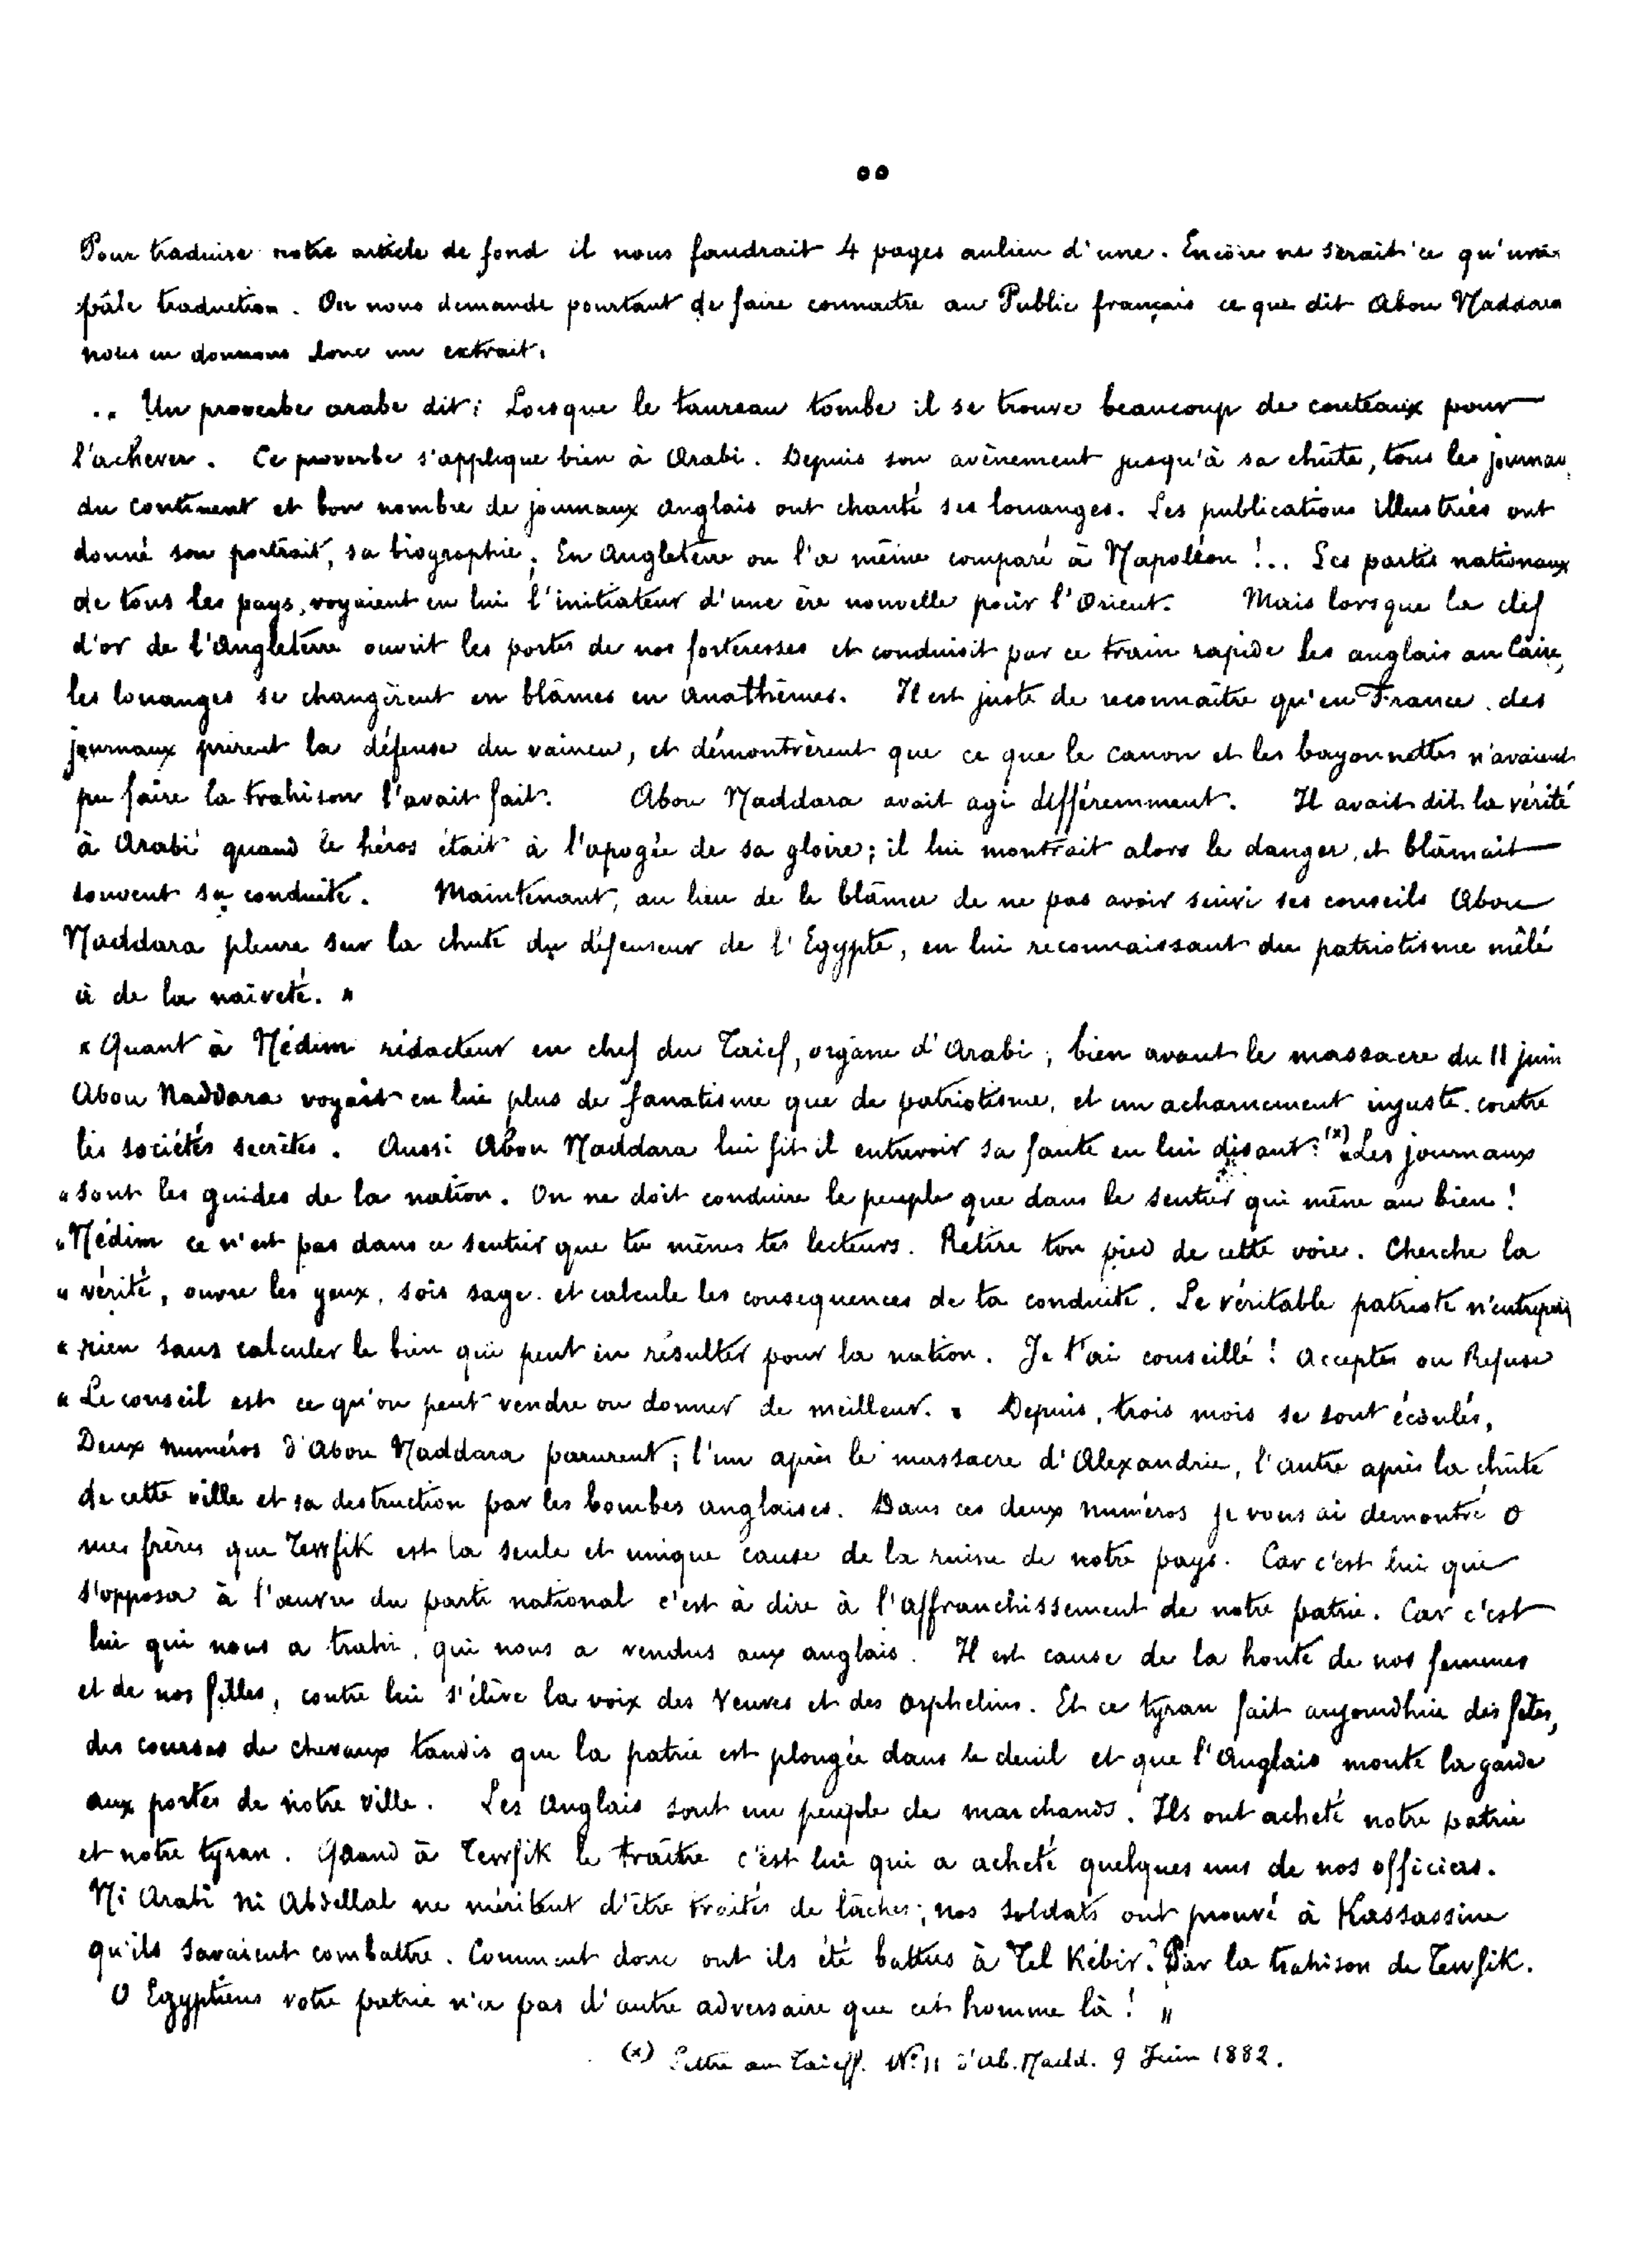 oo
Pour traduire notre article de fond il nous faudrait 4 pages aulieu d'une. Encore ne serait'ce qu'une
pâle traduction. On nous demande pourtant de faire connaitre au Public français ce que dit Abou Naddara
nous en donnons donc un extrait.
.. Un proverbe arabe dit: Lorsque le taureau tombe il se trouve beaucoup de couteaux pour
l'achever. Ce proverbe s'applique bien à Arabi. Depuis son avènement jusqu'à sa chûte, tous les journau
du continent et bon nombre de journaux anglais ont chanté ses louanges. Les publications illustrées ont
donné son portrait, sa biographie; En Angleterre on l'a même comparé à Napoléon !... Les partis nationaux
de tous les pays, voyaient en lui l'initiateur d'une ère nouvelle pour l'Orient. Mais lorsque la clef
d'or de l'Angleterre ouvrit les portes de nos forteresses et conduisit par ce train rapide les anglais au Caire,
les louanges se changèrent en blâmes en anathèmes. Il est juste de reconnaître qu'en France des
journaux prirent la défense du vaincu, et démontrèrent que ce que le canon et les bayonnettes n'avaient
pu faire la trahison l'avait fait. Abou Naddara avait agi différemment. Il avait dit la vérité
à Arabi quand le héros était à l'apogée de sa gloire; il lui montrait alors le danger, et blâmait
souvent sa conduite. Maintenant, au lieu de le blâmer de ne pas avoir suivi ses conseils Abou
Naddara pleure sur la chute du défenseur de l'Egypte, en lui reconnaissant du patriotisme mêlé
à de la naïveté. "
"Quant à Nédim rédacteur en chef du Taief, organe d'Arabi; bien avant le massacre du 11 juin
Abou Naddara voyait en lui plus de fanatisme que de patriotisme, et un acharnement injuste contre
les sociétés secrètes. Aussi Abou Naddara lui fit il entrevoir sa faute en lui disant: (x) "Les journaux
"sont les guides de la nation. On ne doit conduire le peuple que dans le sentier qui mène au bien!
"Nédim ce n'est pas dans ce sentier que tu mènes tes lecteurs. Retire ton pied de cette voie. Cherche la
"vérité, ouvre les yeux, sois sage et calcule les consequences de ta conduite. Le véritable patriote n'entrepren
"rien sans calculer le bien qui peut en résulter pour la nation. Je t'ai conseillé! Acceptes ou Refuse
"Le conseil est ce qu'on peut vendre ou donner de meilleur. " Depuis, trois mois se sont écoulés,
Deux numéros d'Abou Naddara parurent; l'un après le massacre d'Alexandrie, l'autre après la chûte
de cette ville et sa destruction par les bombes anglaises. Dans ces deux numéros je vous ai demontré O
mes frères que Tewfik est la seule et unique cause de la ruine de notre pays. Car c'est lui qui
s'opposa à l'œuvre du parti national c'est à dire à l'affranchissement de notre patrie. Car c'est
lui qui nous a trahi, qui nous a vendus aux anglais. Il est cause de la honte de nos femmes
et de nos filles, contre lui s'élève la voix des Veuves et des Orphelins. Et ce tyran fait aujourdhui des fêtes,
des courses de chevaux tandis que la patrie est plongée dans le deuil et que l'Anglais monte la garde
aux portes de notre ville. Les Anglais sont un peuple de marchands. Ils ont acheté notre patrie
et notre tyran. Quand à Tewfik le traître c'est lui qui a acheté quelques uns de nos officiers.
Ni Arabi ni Abdellal ne méritent d'être traités de lâches; nos soldats ont prouvé à Kassassine
qu'ils savaient combattre. Comment donc ont ils été battus à Tel Kébir? Par la trahison de Tewfik.
O Egyptiens votre patrie n'a pas d'autre adversaire que cet homme là! "
(x) Lettre au Taieff. No 11 d'Ab. Nadd. 9 Juin 1882.